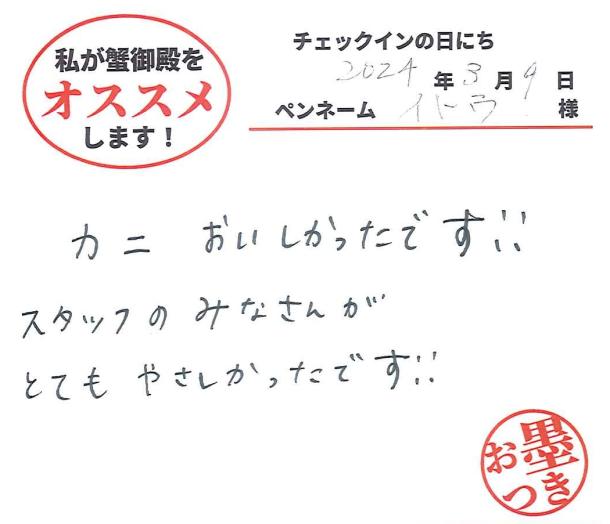 私が蟹御殿を
オススメ
します！
チェックインの日にち
2024年3月9日
ペンネーム イトウ 様
カニ おいしかったです!!
スタッフの みなさんが
とても やさしかったです!!
お墨つき